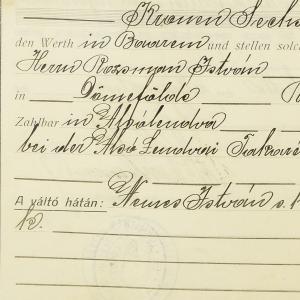 Kronen Sechs
den Werth in Baarem und stellen solc
Herrn Rozsman István
in Dömefölde
Zahlbar in Alsólendva
bei der Alsó Lendvai Takaré
A váltó hátán: Nemes István s. k
k.